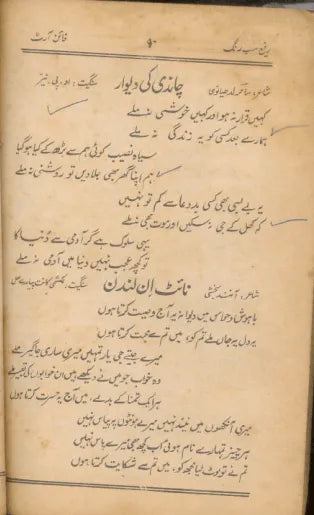 برنچ سب رنگ ۹۰ فائن آرٹ
شاعر: ساحر لدھیانوی چاندی کی دیوار سنگیت: او۔ پی۔ نیر
کہیں قرار نہ ہو اور کہیں خوشی نہ ملے
ہمارے بعد کسی کو یہ زندگی نہ ملے
سیاہ نصیب کوئی ہم سے بڑھ کے کیا ہوگا
ہم اپنا گھر بھی جلا دیں تو روشنی نہ ملے
یہ بے بسی بھی کسی بد دعا سے کم تو نہیں
کہ کھل کے جی نہ سکیں اور موت بھی نہ ملے
یہی سلوک ہے گر آدمی سے دُنیا کا
تو کچھ عجب نہیں دنیا میں آدمی نہ ملے
شاعر: آنند بخشی نائٹ اِن لندن سنگیت: لکشمی کانت پیارے لال
باہوش و حواس میں دیوانہ یہ آج وصیت کرتا ہوں
یہ دل یہ جاں ملے تم کو، میں تم سے محبت کرتا ہوں
میرے جیتے جی یار تمہیں میری ساری جاگیر ملے
وہ خواب جو میں نے دیکھے ہیں ان خوابوں کی تعبیر ملے
ہر ایک تمنا کے بدلے، میں آج یہ حسرت کرتا ہوں
میری آنکھوں میں نیند نہیں میرے ہونٹوں پہ پیاس نہیں
ہر چیز تمہارے نام ہوئی اب کچھ بھی میرے پاس نہیں
تم نے تو لوٹ لیا مجھ کو، میں تم سے شکایت کرتا ہوں